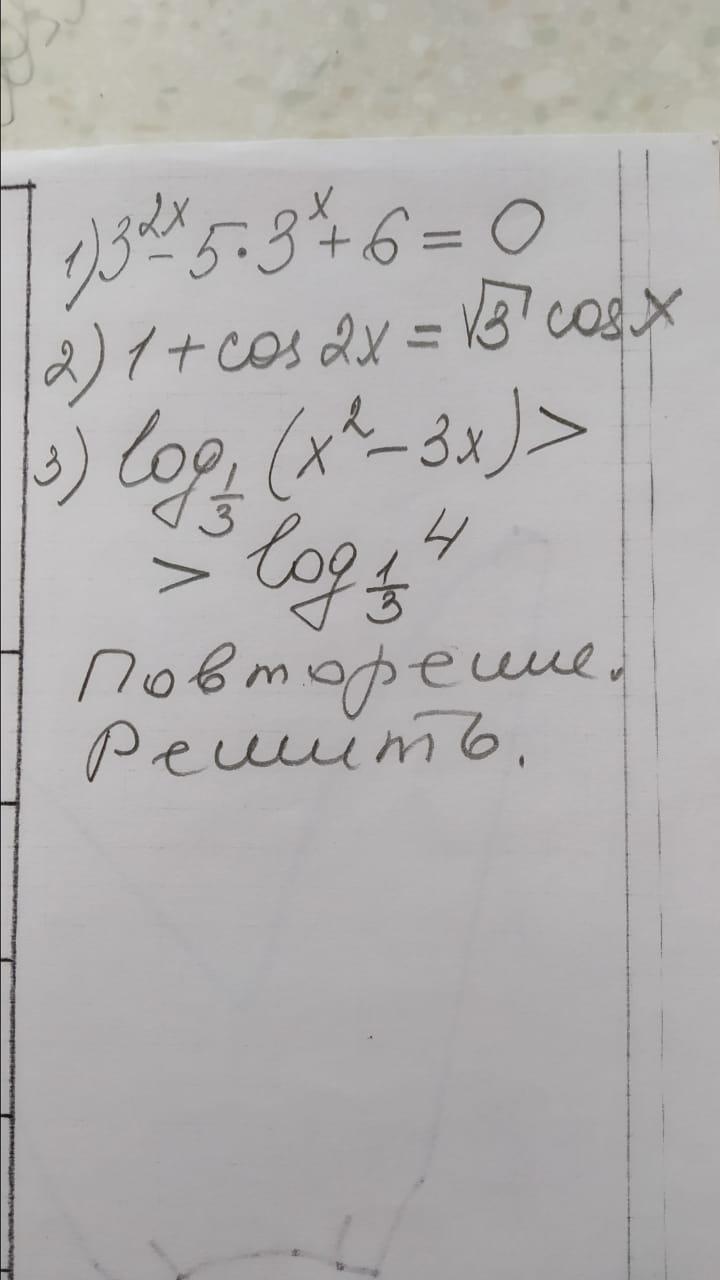 1) 3^{2x} - 5·3^x + 6 = 0
2) 1 + cos 2x = √3 cos x
3) log_{1/3} (x² - 3x) >
> log_{1/3} 4
Повторение.
Решить.